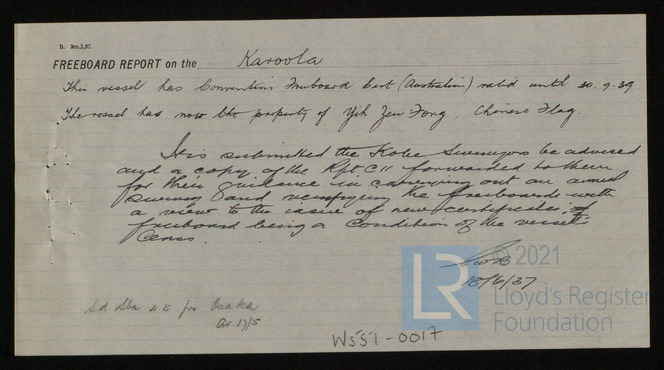 B. 2m,1,37.
FREEBOARD REPORT on the Karoola
This vessel has Convention Freeboard Cert (Australian) valid until 30.9.39
The vessel has now the property of Yih Zeu Fong Chinese Flag.
It is submitted the Kobe Surveyors be advised
and a copy of the Rpt. C11 forwarded to them
for their guidance in carrying out an annual
survey and verifying the freeboards with
a view to the issue of new certificate, of
freeboard being a condition of the vessel's
class.
18/6/37.
for Osaka
Ar 17/5
WS51-0017
© 2021
LR
Lloyd's Register
Foundation